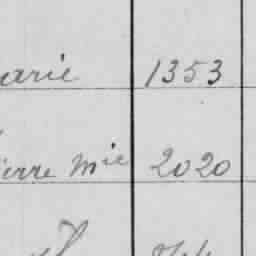 arie 1353
ierre Mie 2020